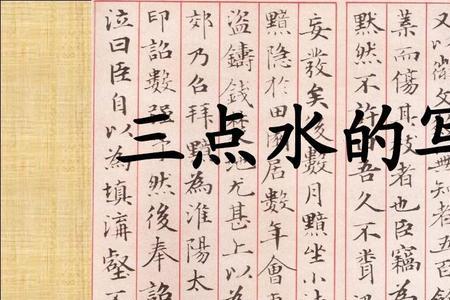 三点水的写
又以微文無知者五百
葉而傷其枝者也臣竊為
默然不許曰吾久不
妄發矣後數月黯坐小法
黯隱於田園居數年會
盜鑄錢楚地尤甚上以為
郊乃召拜黯為淮陽太
印詔數彊予然後奉詔
泣曰臣自以為填溝壑不